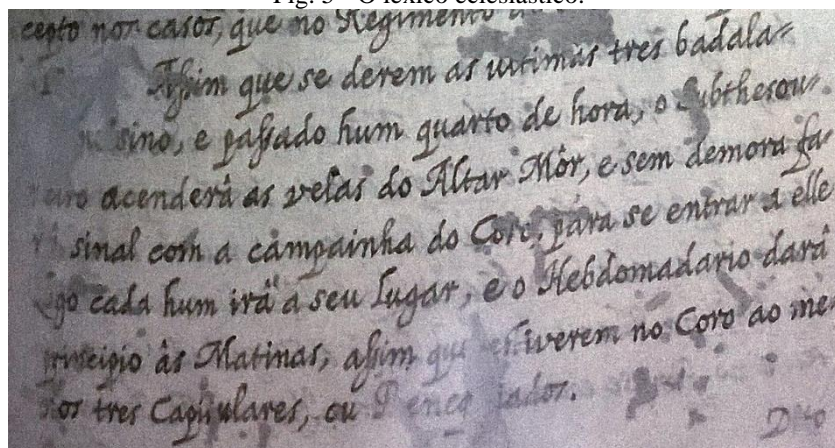 Fig. 3 – O léxico eclesiástico.
cepto nos casos, que no Regimento
Assim que se derem as ultimas tres badala=
sino, e passado hum quarto de hora, o Subthesou=
acenderá as velas do Altar Mòr, e sem demora fa=
sinal com a campainha do Coro, para se entrar a elle
cada hum irá a seu lugar, e o Hebdomadario dará
principio às Matinas, assim que estiverem no Coro ao me
tres Capitulares, ou